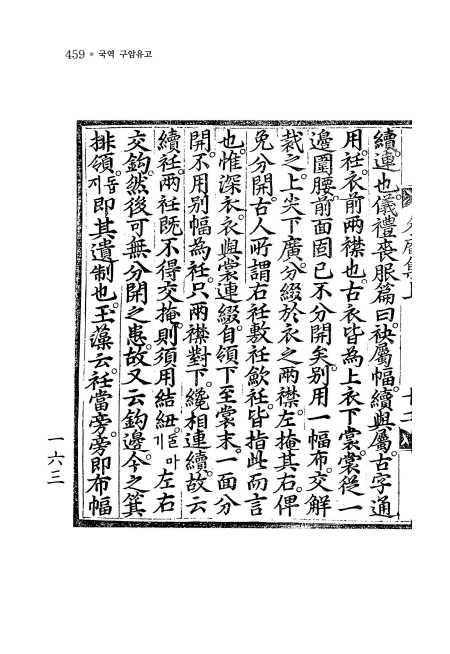 459 ● 국역 구암유고
續連也。儀禮喪服篇曰。袂屬幅。續與屬。古字通
用。衽。衣前兩襟也。古衣皆爲上衣下裳。裳從一
邊圍腰。前面固已不分開矣。別用一幅布。交解
裁之。上尖下廣。分綴於衣之兩襟。左掩其右。俾
免分開。古人所謂右衽敷衽歛衽。皆指此而言
也。惟深衣。衣與裳連綴。自領下至裳末。一面分
開。不用別幅爲衽。只兩襟對下。纔相連續。故云
續衽。兩衽旣不得交掩。則須用結紐。마 左右
交鉤。然後可無分開之患。故又云鉤邊。今之箕
排領。即其遺制也。玉藻云。衽當旁。旁即布幅
一六三